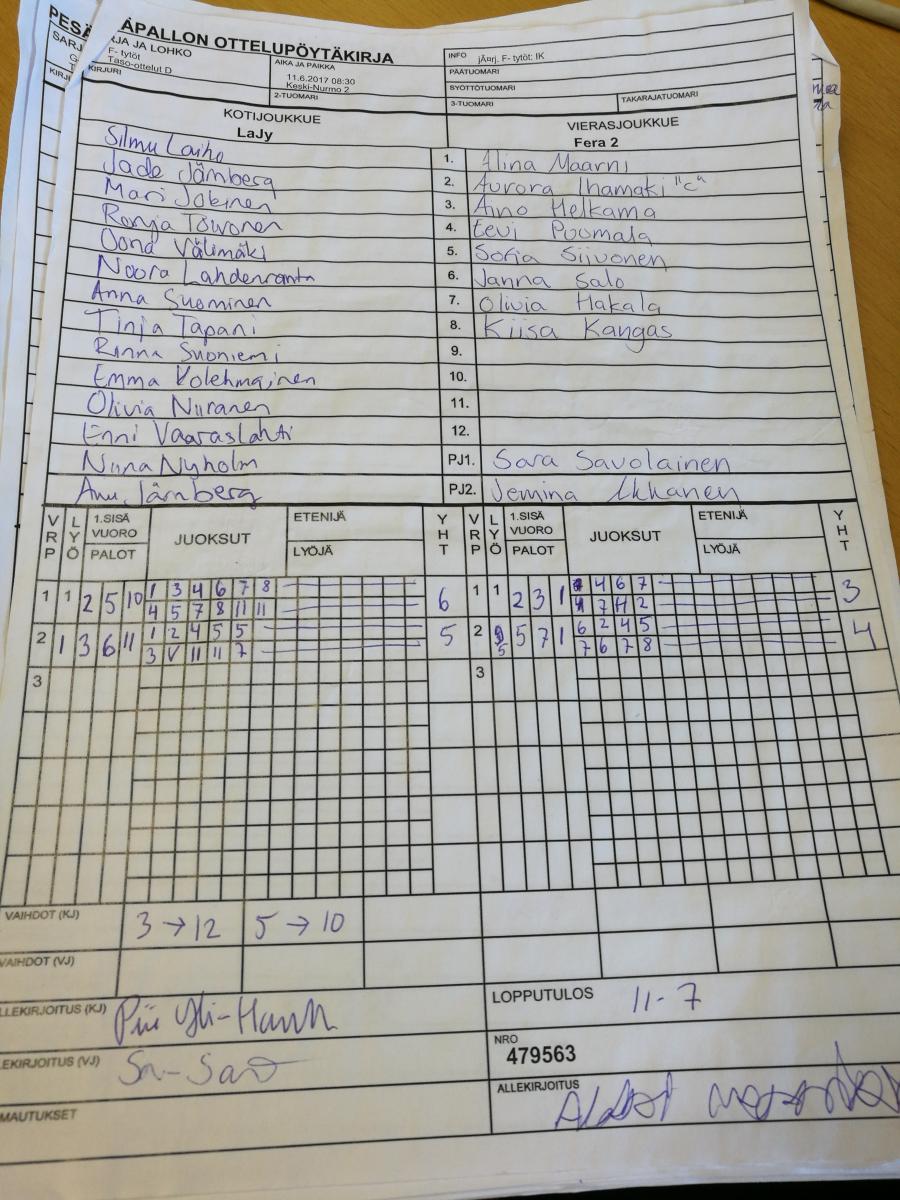 PESÄ ÄPALLON OTTELUPÖYTÄKIRJA
SARJ RJA JA LOHKO
F- tytöt
Taso-ottelut D
AIKA JA PAIKKA
11.6.2017 08:30
Keski-Nurmo 2
INFO jÄurj. F- tytöt: IK
PÄÄTUOMARI
SYÖTTÖTUOMARI
KIRJ KIRJURI
2-TUOMARI
3-TUOMARI
TAKARAJATUOMARI
KOTIJOUKKUE
LaJy
VIERASJOUKKUE
Fera 2
Silmu Laiho 1. Alina Maarni
Jade Järnberg 2. Aurora Ihamäki "c"
Mari Jokinen 3. Aino Helkama
Ronja Towonen 4. Eevi Puomala
Oona Välimäki 5. Sofia Siivonen
Noora Lahdenranta 6. Janna Salo
Anna Suominen 7. Olivia Hakala
Tinja Tapani 8. Kiisa Kangas
Rinna Suoniemi 9.
Emma Kolehmainen 10.
Olivia Niiranen 11.
Enni Vaaraslahti 12.
Niina Nyholm PJ1. Sara Savolainen
Anu Järnberg PJ2. Jemina Ikkanen
VRP LYÖ 1.SISÄ VUORO PALOT JUOKSUT ETENIJÄ LYÖJÄ YHT VRP LYÖ 1.SISÄ VUORO PALOT JUOKSUT ETENIJÄ LYÖJÄ YHT
1 1 2 5 10 1 3 4 6 7 8 6 1 1 2 3 1 4 6 7 3
4 5 7 8 11 11 4 7 H 2
2 1 3 6 11 1 2 4 5 5 5 2 5 5 7 1 6 2 4 5 4
3 V 11 11 7 7 6 7 8
3 3
VAIHDOT (KJ) 3 → 12 5 → 10
VAIHDOT (VJ)
LLEKIRJOITUS (KJ)
LOPPUTULOS 11-7
LEKIRJOITUS (VJ)
NRO
479563
MAUTUKSET
ALLEKIRJOITUS